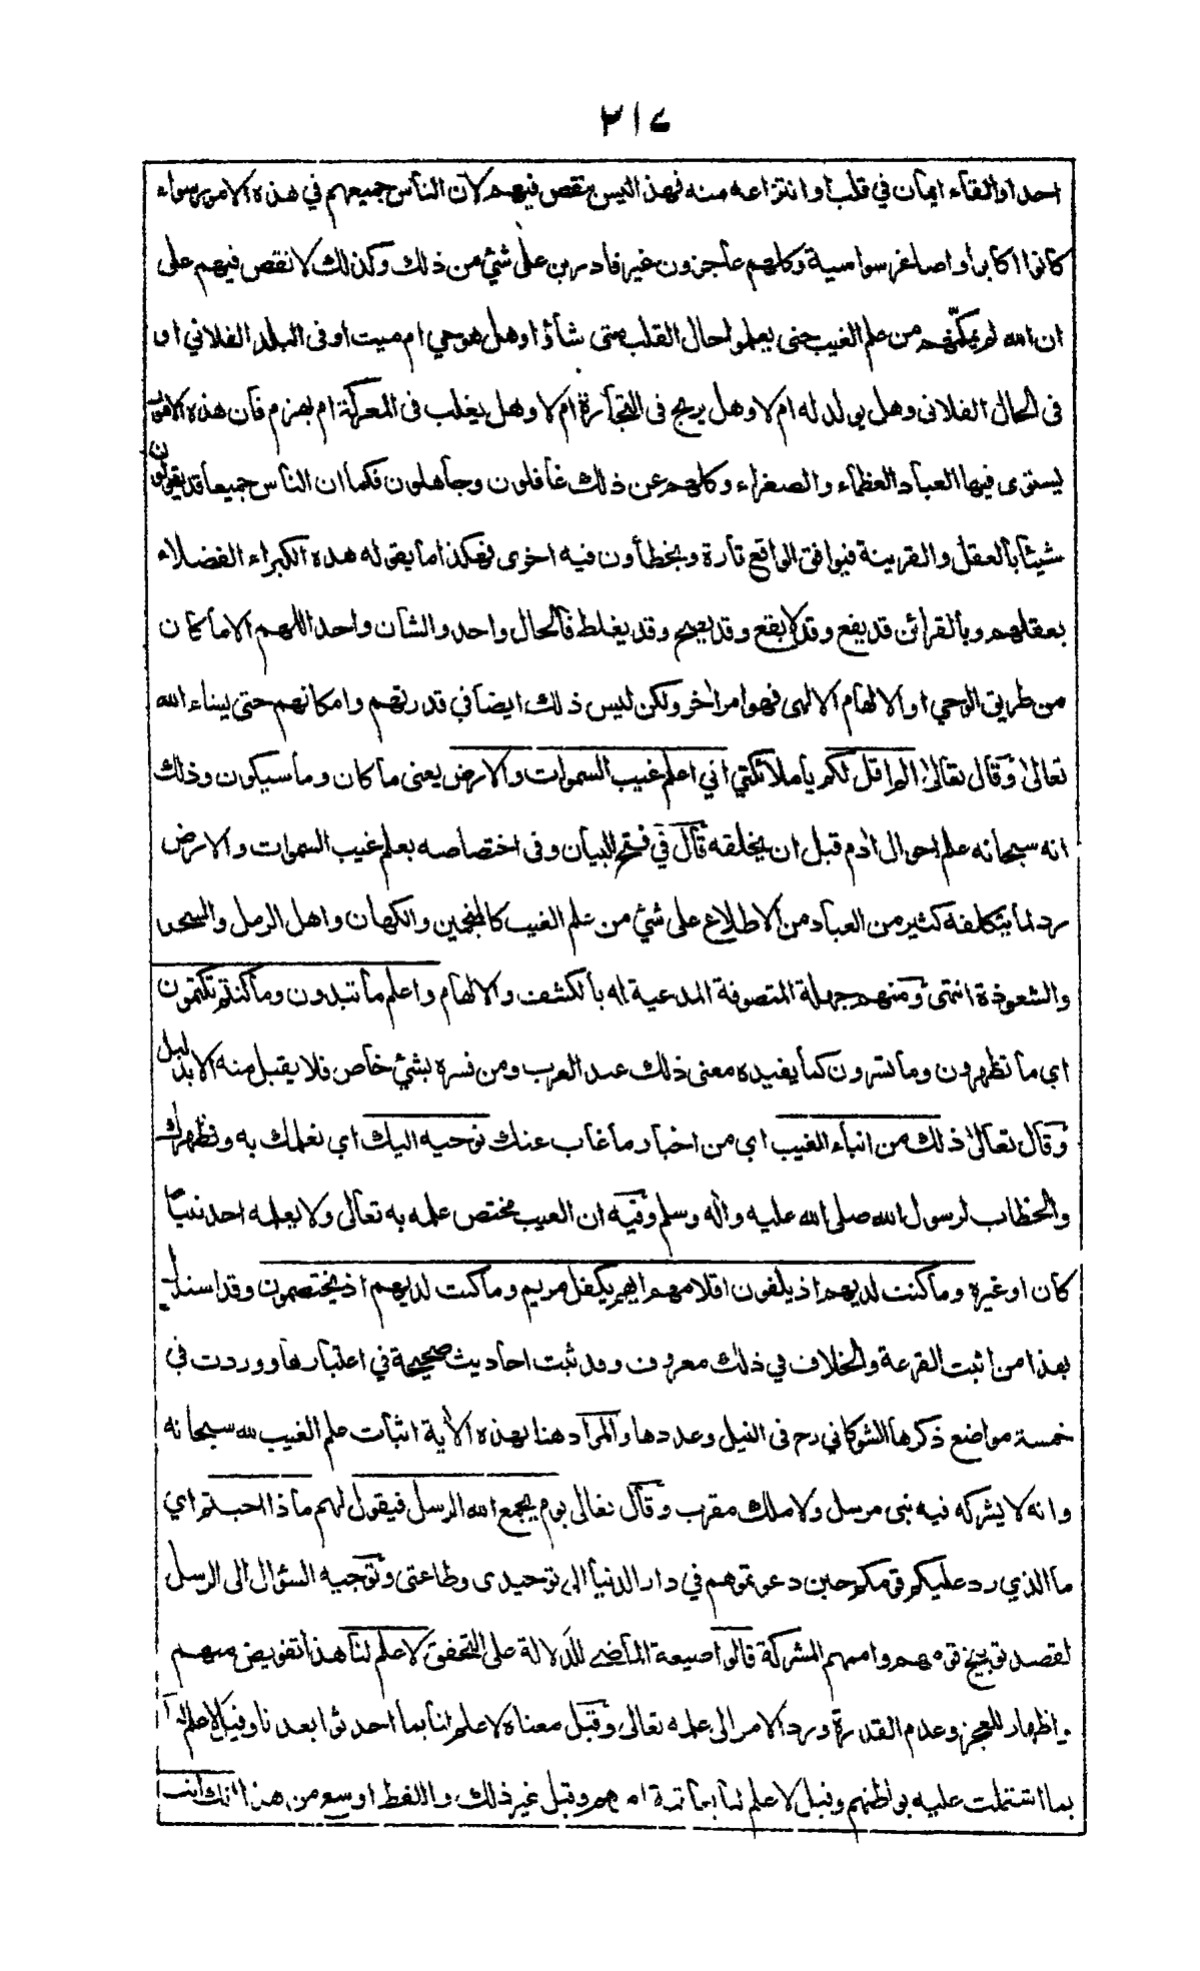 ٢١٧
احدا والقاء ايمان في قلب او انتزاعه منه فهذا ليس بنقص فيهم لان الناس جميعهم في هذه الامور سواء
كانوا اكابر او اصاغر سواسية وكلهم عاجزون غير قادرين على شئ من ذلك وكذلك لا نقص فيهم على
ان الله لم يمكنهم من علم الغيب حتى يعلموا حال القلب متى شاؤا وهل هو حي ام ميت او في البلد الفلاني او
في الحال الفلاني وهل يولد له ام لا وهل يربح في التجارة ام لا وهل يغلب في المعركة ام يهزم فان هذه الامور
يستوى فيها العباد العظماء والصغراء وكلهم عن ذلك غافلون وجاهلون فكما ان الناس جميعا قد يقولون
شيئا بالعقل والقرينة فيوافق الواقع تارة ويخطأون فيه اخرى فهكذا ما يقوله هذه الكبراء الفضلاء
بعقلهم وبالقرائن قد يقع وقد لا يقع وقد يصح وقد يغلط فالحال واحد والشان واحد اللهم الا ما كان
من طريق الوحي او الالهام الالهى فهو امر اخر ولكن ليس ذلك ايضا في قدرتهم وامكانهم حتى يشاء الله
تعالى وقال تعالى الم اقل لكم يا ملائكتي اني اعلم غيب السموات والارض يعنى ما كان وما سيكون وذلك
انه سبحانه علم احوال ادم قبل ان يخلقه قال في فتح البيان وفى اختصاصه بعلم غيب السموات والارض
رد لما يتكلفه كثير من العباد من الاطلاع على شئ من علم الغيب كالمنجمين والكهان واهل الرمل والسحر
والشعوذة انتهى ومنهم جهلة المتصوفة المدعية له بالكشف والالهام واعلم ما تبدون وما كنتم تكتمون
اي ما تظهرون وما تسرون كما يفيده معنى ذلك عند العرب ومن فسره بشئ خاص فلا يقبل منه الا بدليل
وقال تعالى ذلك من انباء الغيب اي من اخبار ما غاب عنك نوحيه اليك اي نعلمك به ونظهرك
والخطاب لرسول الله صلى الله عليه واله وسلم وفيه ان الغيب مختص علمه به تعالى ولا يعلمه احد نبيا
كان او غيره وما كنت لديهم اذ يلقون اقلامهم ايهم يكفل مريم وما كنت لديهم اذ يختصمون وقد استدل
بهذا من اثبت القرعة والخلاف في ذلك معروف وقد ثبت احاديث صحيحة في اعتبارها ووردت في
خمسة مواضع ذكرها الشوكاني رح في النيل وعددها والمراد هنا بهذه الآية اثبات علم الغيب لله سبحانه
وانه لا يشركه فيه نبى مرسل ولا ملك مقرب وقال تعالى يوم يجمع الله الرسل فيقول لهم ماذا اجبتم اي
ما الذي رد عليكم قومكم حين دعوتموهم في دار الدنيا الى توحيدى وطاعتى وتوجيه السؤال الى الرسل
لقصد توبيخ قومهم واممهم المشركة قالوا صيغة الماضي للدلالة على التحقق لا علم لنا هذا تفويض منهم
واظهار للعجز وعدم القدرة ورد الامر الى علمه تعالى وقيل معناه لا علم لنا بما احدثوا بعدنا وقيل لا علم لنا
بما اشتملت عليه بواطنهم وقيل لا علم لنا بعاقبة امرهم وقيل غير ذلك واللفظ اوسع من هذا انك انت